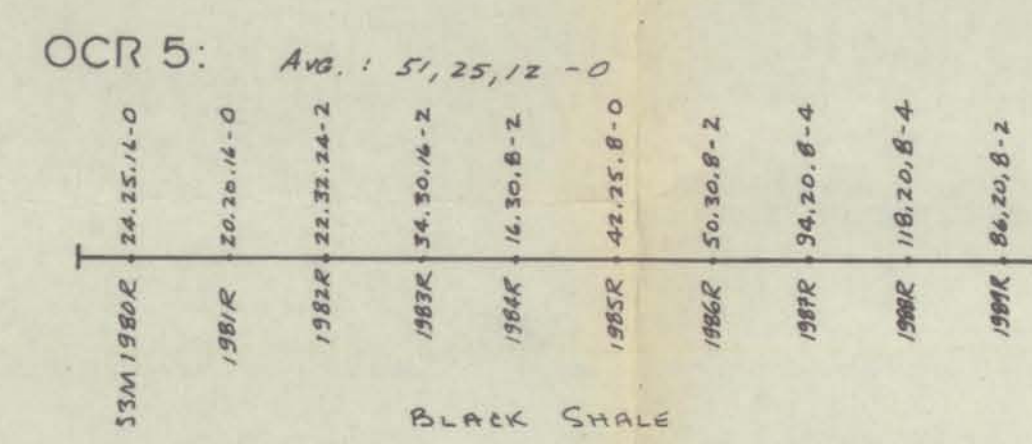 OCR 5: Avg. : 51, 25, 12 - 0
24.25.16-0
20.20.16-0
22.32.24-2
34.30.16-2
16.30.8-2
42.25.8-0
50.30.8-2
94.20.8-4
118,20,8-4
86,20,8-2
S3M 1980R
1981R
1982R
1983R
1984R
1985R
1986R
1987R
1988R
1989R
BLACK SHALE